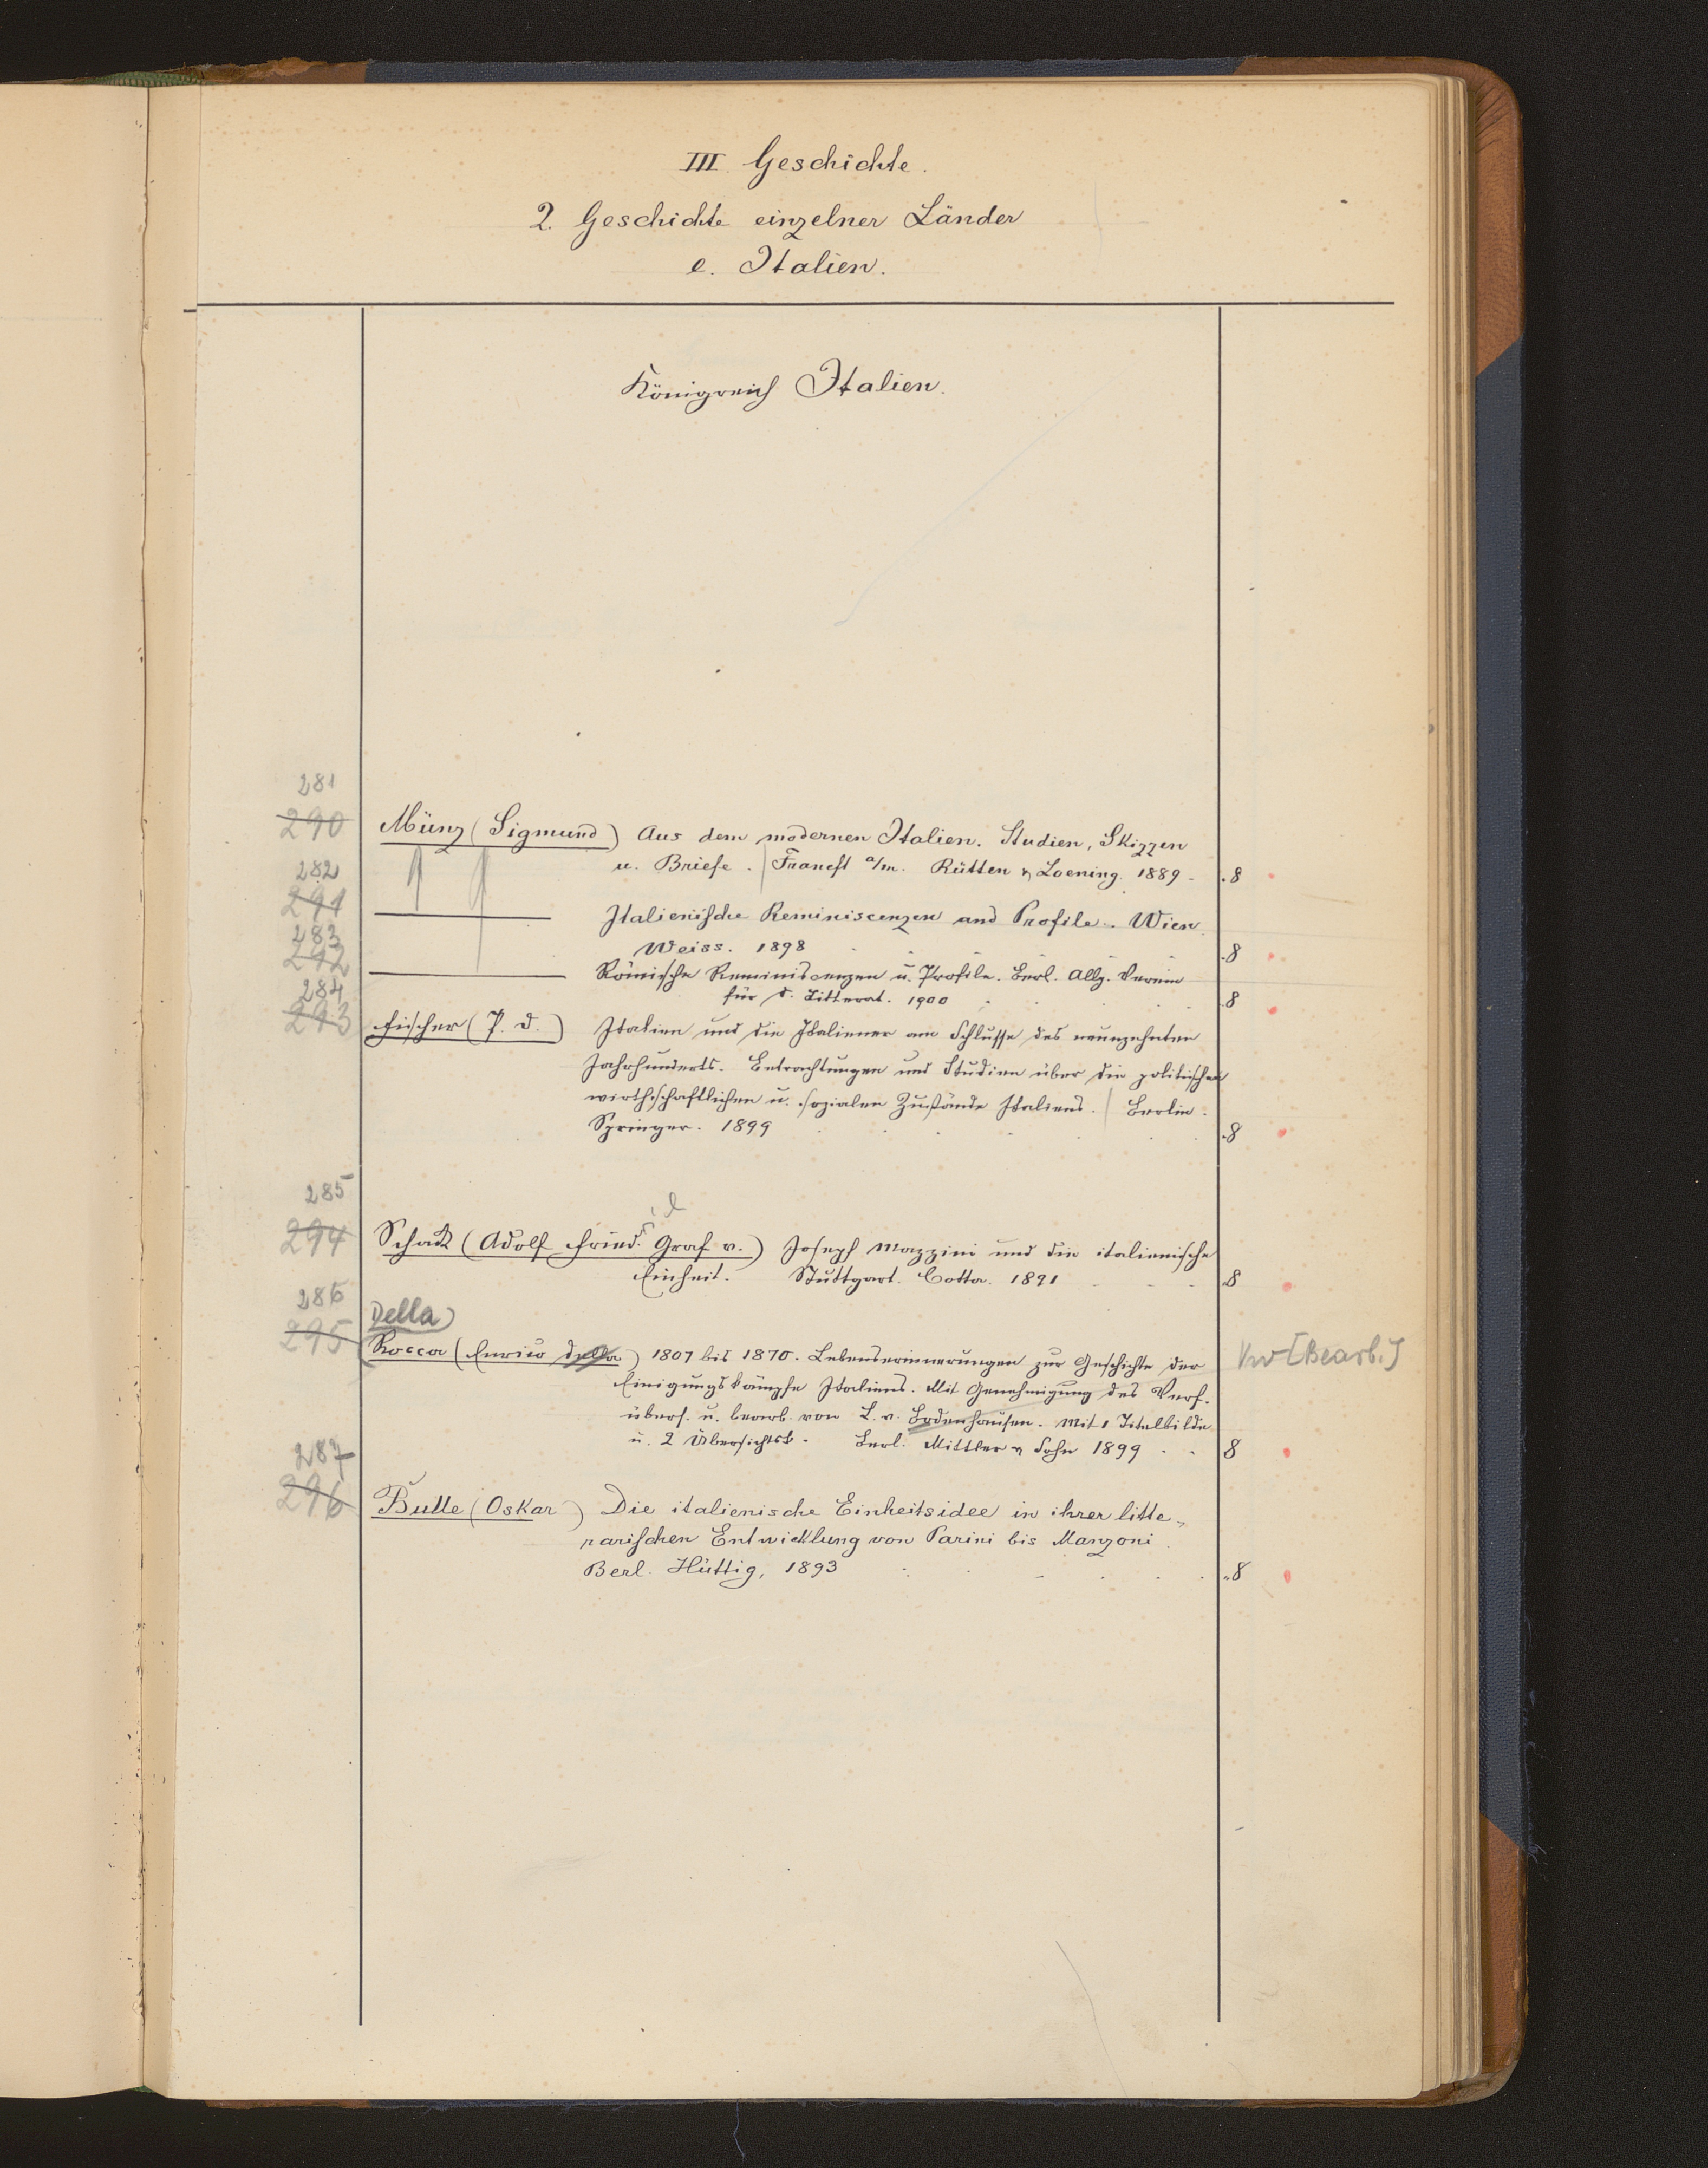 III Geschichte.
2. Geschichte einzelner Länder
e. Italien.
Königreich Italien.
281
290 Münz (Sigmund) Aus dem modernen Italien. Studien, Skizzen
282 u. Briefe. Francft a/m. Rütten & Loening. 1889 - 8
291 Italienische Reminiscenzen and Profile. Wien
283 Weiss. 1898 8
292 Römische Reminiscenzen u. Profile. Berl. Allg. Verein
284 für d. Litterat. 1900 8
293 Fischer (P. D.) Italien und die Italiener am Schlusse des neunzehnten
Jahrhunderts. Betrachtungen und Studien über die politischen
wirthschaftlichen u. sozialen Zustände Italiens. Berlin.
Springer. 1899 8
285
294 Schack (Adolf Fried. Graf v.) Joseph Mazzini und die italienische
Einheit. Stuttgart. Cotta. 1891 8
286 Della
295 Rocca (Enrico della) 1807 bis 1870. Lebenserinnerungen zur Geschichte der Vw [Bearb.]
Einigungskämpfe Italiens. Mit Genehmigung des Verf.
übers. u. bearb. von L. v. Bodenhausen. Mit 1 Titelbilde
u. 2 Übersichtsk. Berl. Mittler & Sohn 1899 8
287
296 Bulle (Oskar) Die italienische Einheitsidee in ihrer litte-
rarischen Entwicklung von Parini bis Manzoni.
Berl. Hüttig, 1893 8